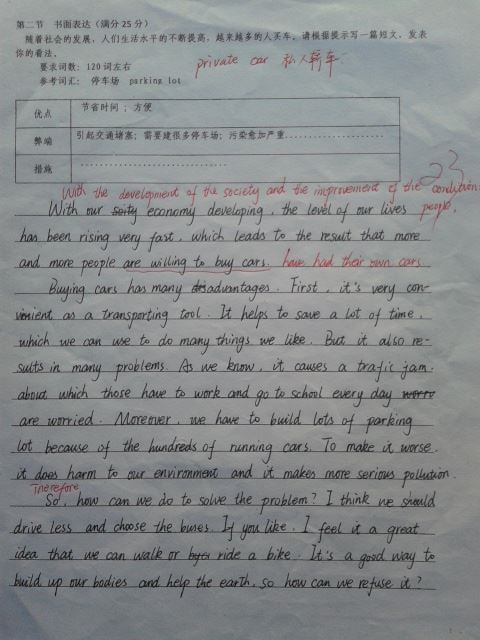 第二节 书面表达（满分25分）
随着社会的发展，人们生活水平的不断提高，越来越多的人买车，请根据提示写一篇短文，发表
你的看法。
要求词数：120词左右
private car 私人轿车
参考词汇： 停车场 parking lot
优点 节省时间；方便
弊端 引起交通堵塞；需要建很多停车场；污染愈加严重…………………
措施 ……………………………
23
With the development of the society and the improvement of the condition
people,
With our economy developing, the level of our lives
has been rising very fast, which leads to the result that more
and more people are willing to buy cars. have had their own cars
Buying cars has many advantages. First, it's very con-
vinient as a transporting tool. It helps to save a lot of time,
which we can use to do many things we like. But it also re-
sults in many problems. As we know, it causes a trafic jam.
about which those have to work and go to school every day
are worried. Moreover, we have to build lots of parking
lot because of the hundreds of running cars. To make it worse.
it does harm to our environment and it makes more serious pollution.
Therefore
So, how can we do to solve the problem? I think we should
drive less and choose the buses. If you like, I feel it a great
idea that we can walk or ride a bike. It's a good way to
build up our bodies and help the earth, so how can we refuse it?